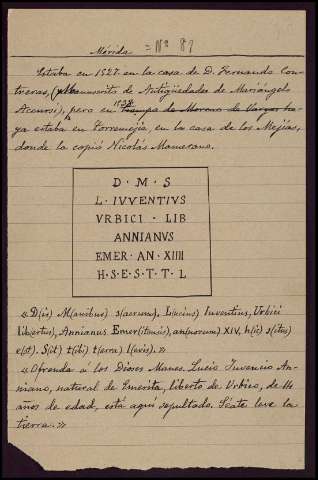 Mérida = Nº 81
Estaba en 1527 en la casa de D. Fernando Con-
treras, (Manuscrito de Antigüedades de Mariángelo
Accursi), pero en 1538 tiempo de Moreno de Vargas ha
ya estaba en Torremejía, en la casa de los Mejías,
donde la copió Nicolás Mamerano.
D · M · S
L · IVVENTIVS
VRBICI · LIB
ANNIANVS
EMER · AN · XIIII
H · S · E · S · T · T · L
« D(is) M(anibus) s(acrum), L(ucius) Iuventius, Urbici
lib(ertus), Annianus Emer(itensis), an(norum) XIV, h(ic) s(itus)
e(st). S(it) t(ibi) t(erra) l(evis). »
« Ofrenda á los Dioses Manes. Lucio Juvencio An-
niano, natural de Emerita, liberto de Urbico, de 14
años de edad, está aquí sepultado. Séate leve la
tierra. »